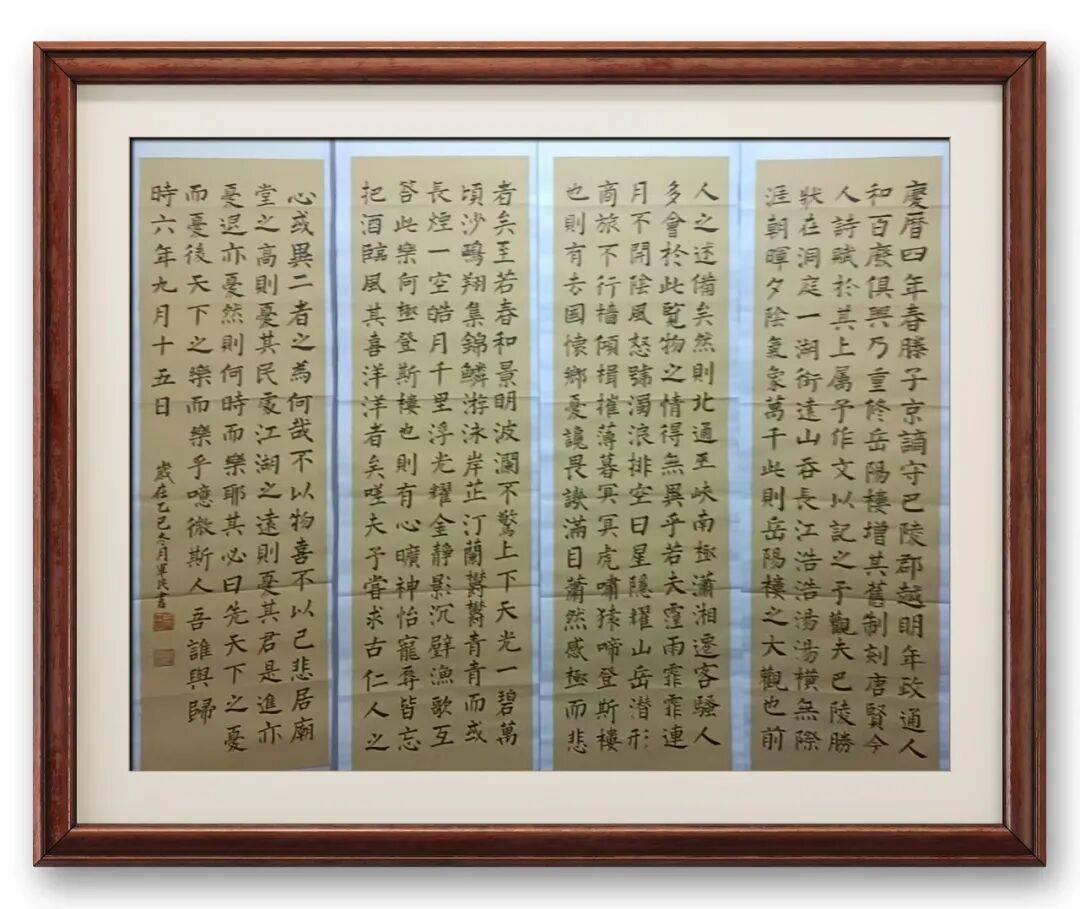 慶曆四年春滕子京謫守巴陵郡越明年政通人
和百廢俱興乃重修岳陽樓增其舊制刻唐賢今
人詩賦於其上属予作文以記之予觀夫巴陵勝
狀在洞庭一湖銜遠山吞長江浩浩湯湯橫無際
涯朝暉夕陰氣象萬千此則岳陽樓之大觀也前
人之述備矣然則北通巫峽南極瀟湘遷客騷人
多會於此覽物之情得無異乎若夫霪雨霏霏連
月不開陰風怒號濁浪排空日星隱耀山岳潜形
商旅不行檣傾楫摧薄暮冥冥虎嘯猿啼登斯樓
也則有去国懷鄉憂讒畏譏滿目蕭然感極而悲
者矣至若春和景明波瀾不驚上下天光一碧萬
頃沙鷗翔集錦鱗游泳岸芷汀蘭鬱鬱青青而或
長煙一空皓月千里浮光耀金靜影沉璧漁歌互
答此樂何極登斯樓也則有心曠神怡寵辱皆忘
把酒臨風其喜洋洋者矣嗟夫予嘗求古仁人之
心或異二者之為何哉不以物喜不以己悲居廟
堂之高則憂其民處江湖之遠則憂其君是進亦
憂退亦憂然則何時而樂耶其必曰先天下之憂
而憂後天下之樂而樂乎噫微斯人吾誰與歸
時六年九月十五日
歲在乙巳冬月軍民書